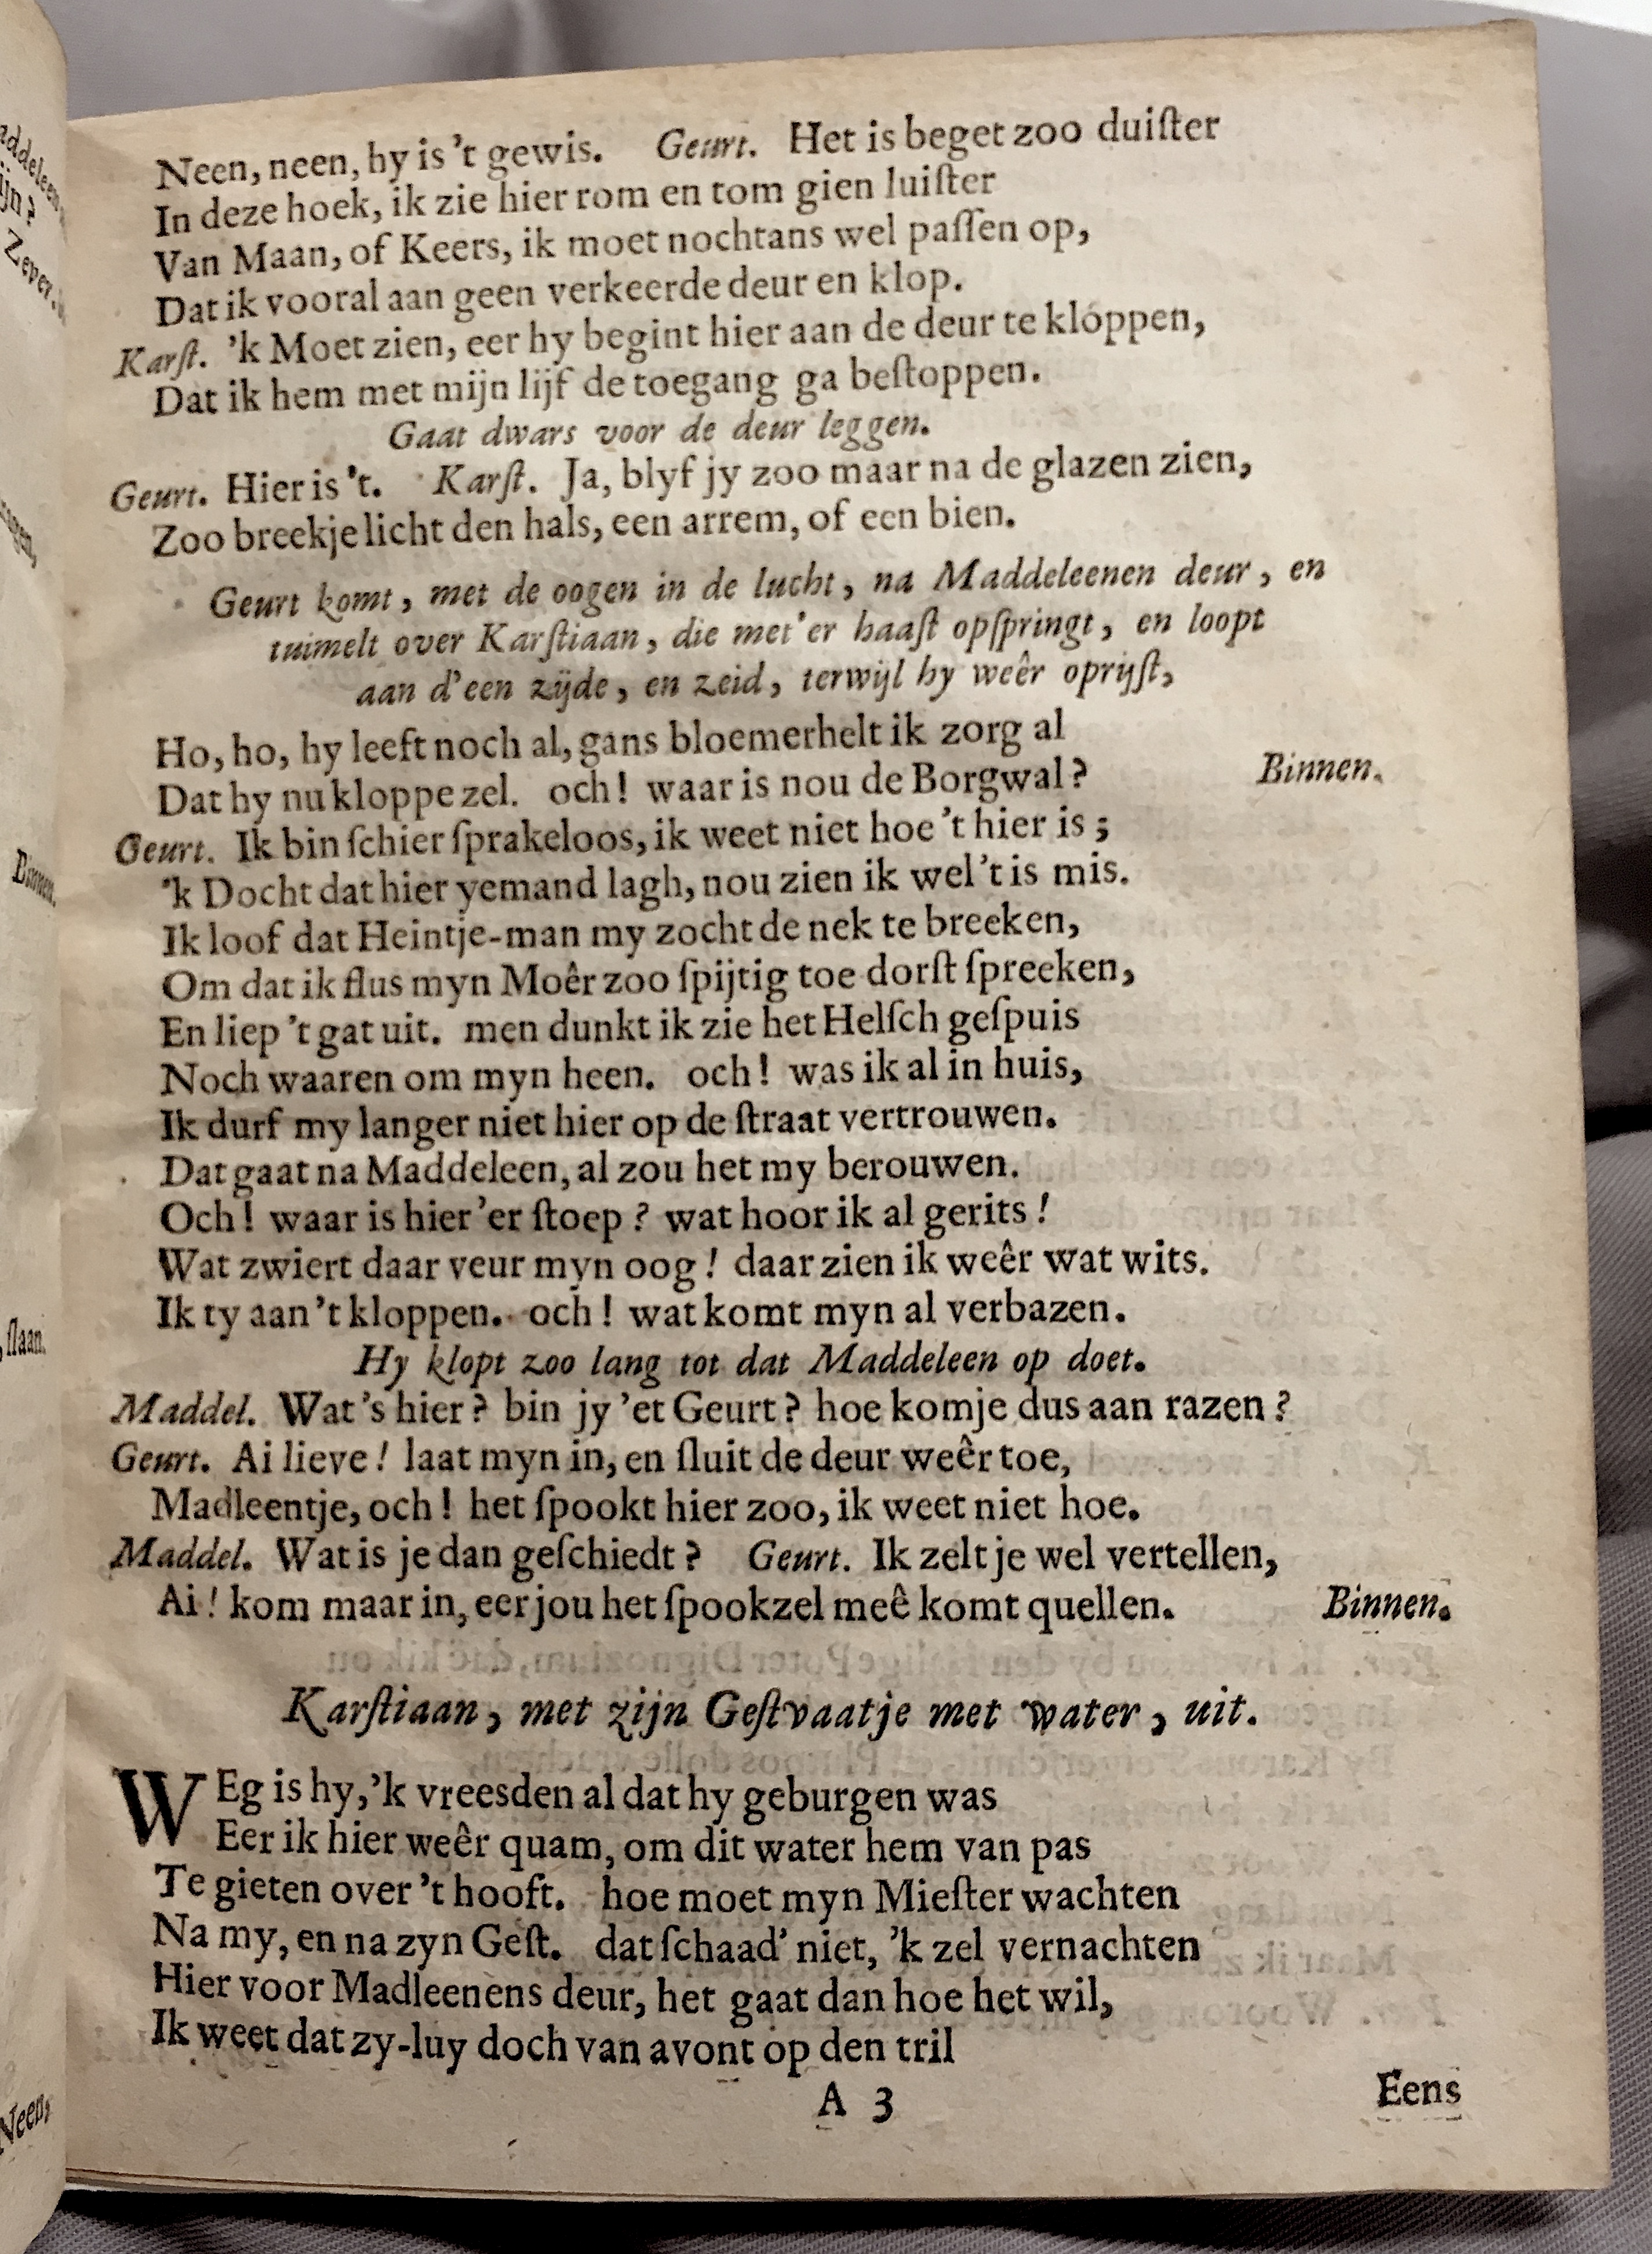 Neen, neen, hy is 't gewis. Geurt. Het is beget zoo duiſter
In deze hoek, ik zie hier rom en tom gien luiſter
Van Maan, of Keers, ik moet nochtans wel paſſen op,
Dat ik vooral aan geen verkeerde deur en klop.
Karſt. 'k Moet zien, eer hy begint hier aan de deur te klóppen,
Dat ik hem met mijn lijf de toegang ga beſtoppen.
Gaat dwars voor de deur leggen.
Geurt. Hier is 't. Karſt. Ja, blyf jy zoo maar na de glazen zien,
Zoo breekje licht den hals, een arrem, of een bien.
Geurt komt, met de oogen in de lucht, na Maddeleenen deur, en
tuimelt over Karſtiaan, die met'er haaſt opſpringt, en loopt
aan d'een zijde, en zeid, terwijl hy weêr oprijſt,
Ho, ho, hy leeft noch al, gans bloemerhelt ik zorg al
Dat hy nu kloppe zel. och! waar is nou de Borgwal? Binnen.
Geurt. Ik bin ſchier ſprakeloos, ik weet niet hoe 't hier is;
'k Docht dat hier yemand lagh, nou zien ik wel 't is mis.
Ik loof dat Heintje-man my zocht de nek te breeken,
Om dat ik flus myn Moêr zoo ſpijtig toe dorſt ſpreeken,
En liep 't gat uit. men dunkt ik zie het Helſch geſpuis
Noch waaren om myn heen. och! was ik al in huis,
Ik durf my langer niet hier op de ſtraat vertrouwen.
Dat gaat na Maddeleen, al zou het my berouwen.
Och! waar is hier 'er ſtoep? wat hoor ik al gerits!
Wat zwiert daar veur myn oog! daar zien ik weêr wat wits.
Ik ty aan 't kloppen. och! wat komt myn al verbazen.
Hy klopt zoo lang tot dat Maddeleen op doet.
Maddel. Wat 's hier? bin jy 'et Geurt? hoe komje dus aan razen?
Geurt. Ai lieve! laat myn in, en ſluit de deur weêr toe,
Madleentje, och! het ſpookt hier zoo, ik weet niet hoe.
Maddel. Wat is je dan geſchiedt? Geurt. Ik zelt je wel vertellen,
Ai! kom maar in, eer jou het ſpookzel meê komt quellen. Binnen.
Karſtiaan, met zijn Geſtvaatje met water, uit.
WEg is hy, 'k vreesden al dat hy geburgen was
Eer ik hier weêr quam, om dit water hem van pas
Te gieten over 't hooft. hoe moet myn Mieſter wachten
Na my, en na zyn Geſt. dat ſchaad' niet, 'k zel vernachten
Hier voor Madleenens deur, het gaat dan hoe het wil,
Ik weet dat zy-luy doch van avont op den tril
A 3
Eens